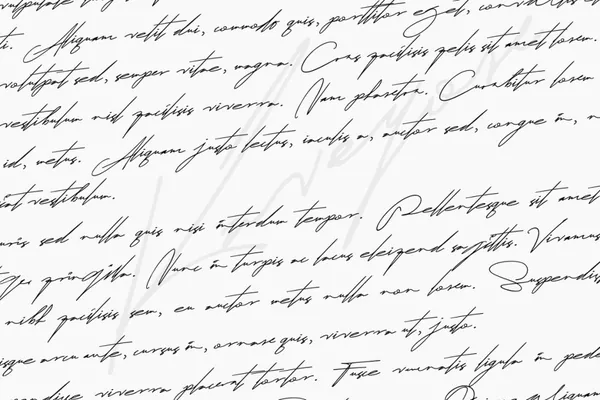 vulputate vel, commodo quis, porttitor eget,
ti. Aliquam velit dui, commodo quis, porttitor eget, convallis
volutpat sed, semper vitae, magna. Cras facilisis felis sit amet lorem.
vestibulum nisl facilisis viverra. Nam pharetra. Curabitur lorem
id, metus. Aliquam justo lectus, iaculis a, auctor sed, congue in, n
int vestibulum.
uris sed nulla quis nisi interdum tempor. Pellentesque sit amet
fringilla. Nunc in turpis ac lacus eleifend sagittis. Vivamus
nibh facilisis sem, eu auctor metus nulla non lorem. Suspendiss
isque arcu ante, cursus in, ornare quis, viverra ut, justo.
viverra placerat tortor. Fusce venenatis ligula in pede
aliquam